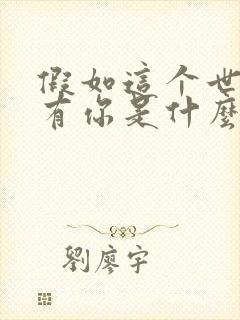 假如這个世
有你是什麼
劉廖宇